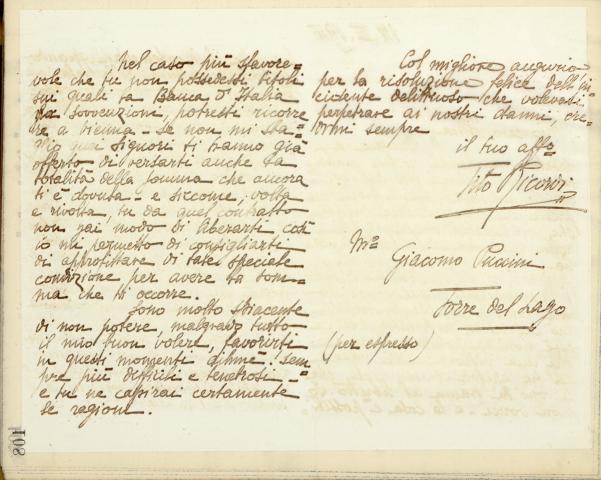 Nel caso più sfavore-
vole che tu non possedessi titoli
sui quali la Banca d'Italia
fa sovvenzione, potresti ricorre
re a Vienna - se non mi sba-
glio quei signori ti hanno già
offerto di versarti anche la
totalità della somma che ancora
ti è dovuta - e siccome, volta
e rivolta, tu da quel contratto
non hai modo di liberarti così
io mi permetto di consigliarti
di approfittare di tale speciale
condizione per avere la som-
ma che ti occorre.
Sono molto spiacente
di non potere, malgrado tutto
il mio buon volere, favorirti
in questi momenti ahimè! sem
pre più difficili e tenebrosi -
e tu ne capirai certamente
le ragioni.
Col migliore augurio
per la risoluzione felice dell'in-
cidente delittuoso che volevasi
perpetrare ai nostri danni, cre-
dimi sempre
il tuo affo
Tito Ricordi
Mo
Giacomo Puccini
Torre del Lago
(per espresso)
801